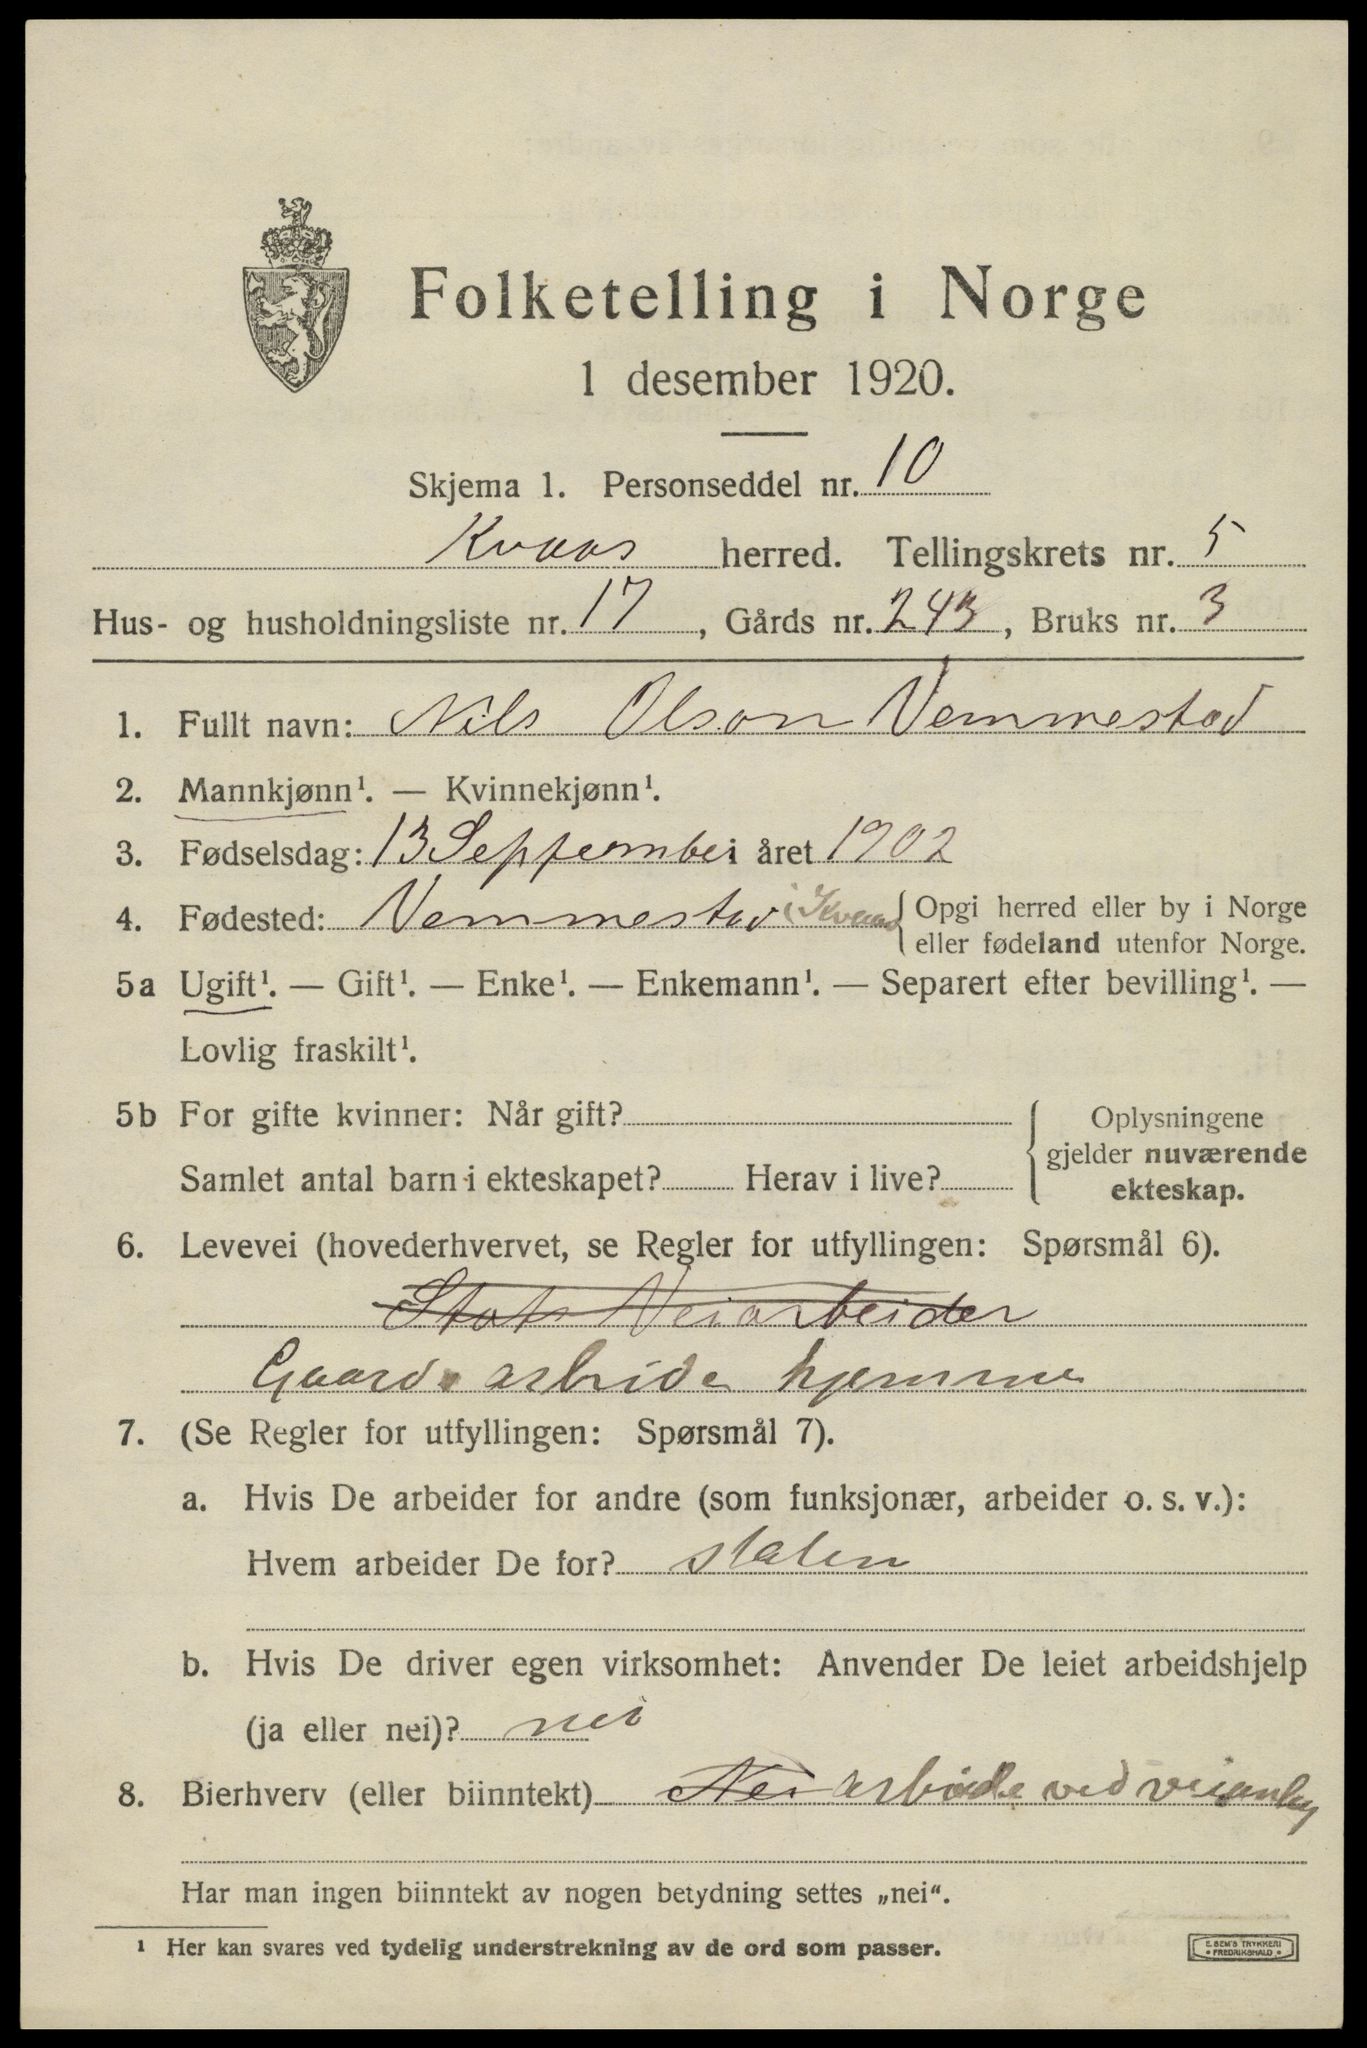 Folketelling i Norge
1 desember 1920.
Skjema 1. Personseddel nr. 10
Kvaas herred. Tellingskrets nr. 5
Hus- og husholdningsliste nr. 17, Gårds nr. 243, Bruks nr. 3
1. Fullt navn: Nils Olson Vemmestad
2. Mannkjønn¹. — Kvinnekjønn¹.
3. Fødselsdag: 13 September i året 1902
4. Fødested: Vemmestad i Kvaas { Opgi herred eller by i Norge
eller fødeland utenfor Norge.
5a Ugift¹. — Gift¹. — Enke¹. — Enkemann¹. — Separert efter bevilling¹. —
Lovlig fraskilt¹.
5b For gifte kvinner: Når gift?
Samlet antal barn i ekteskapet? Herav i live?
Oplysningene
gjelder nuværende
ekteskap.
6. Levevei (hovederhvervet, se Regler for utfyllingen: Spørsmål 6).
Stats Veiarbeider
Gaards arbeide hjemme
7. (Se Regler for utfyllingen: Spørsmål 7).
a. Hvis De arbeider for andre (som funksjonær, arbeider o. s. v.):
Hvem arbeider De for? staten
b. Hvis De driver egen virksomhet: Anvender De leiet arbeidshjelp
(ja eller nei)? nei
8. Bierhverv (eller biinntekt) Nei arbeide ved veianlæg
Har man ingen biinntekt av nogen betydning settes „nei“.
¹ Her kan svares ved tydelig understrekning av de ord som passer.
E. SEM'S TRYKKERI
• FREDRIKSHALD •